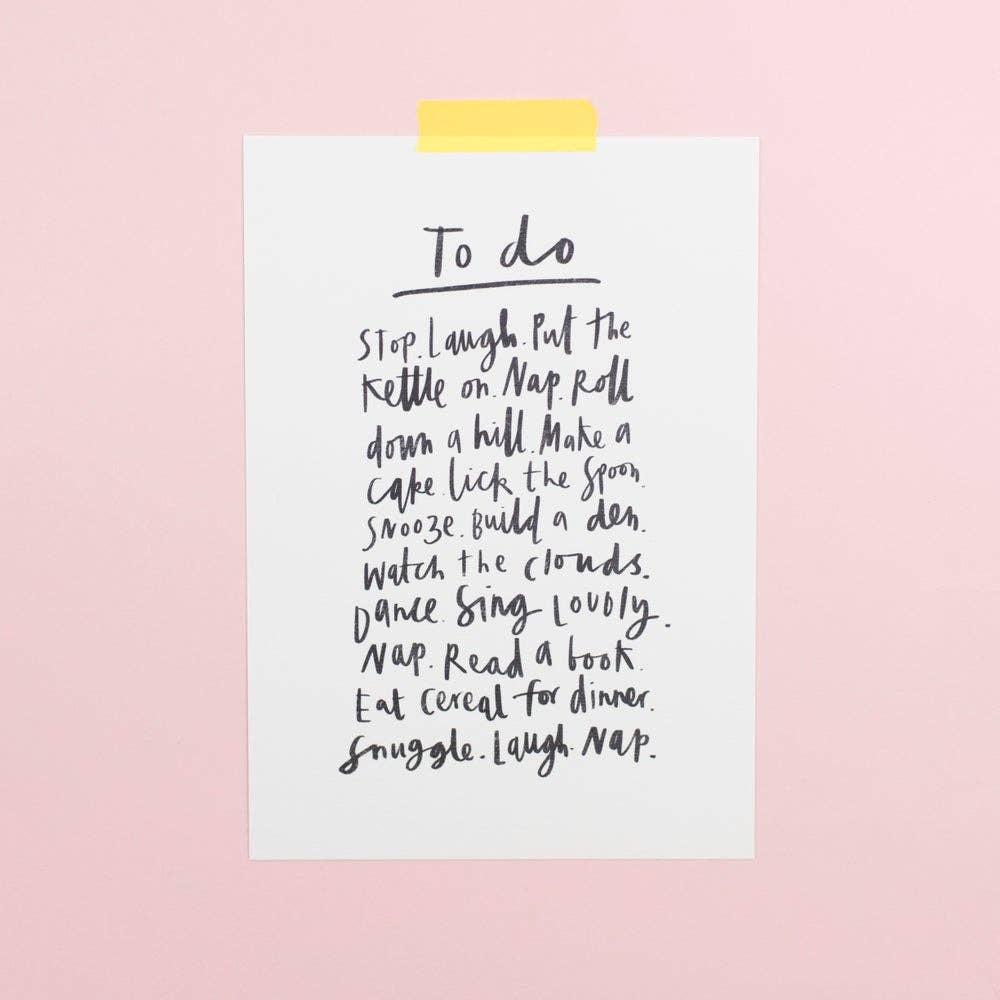 To do
Stop. Laugh. Put the
kettle on. Nap. Roll
down a hill. Make a
cake. lick the spoon.
Snooze. Build a den.
Watch the clouds.
Dance. Sing Loudly.
Nap. Read a book.
Eat cereal for dinner.
Snuggle. Laugh. Nap.